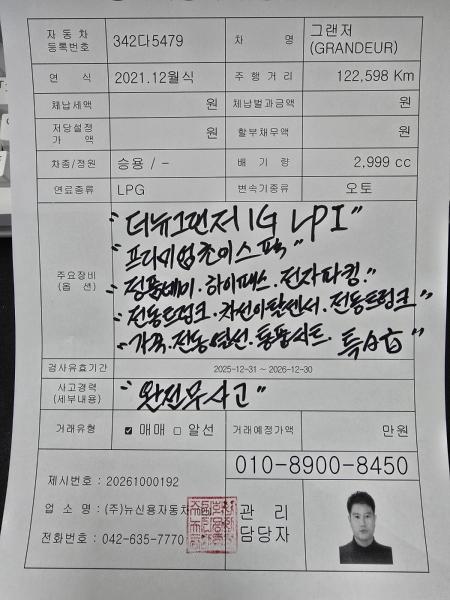 자 동 차 등록번호 342다5479 차 명 그랜저 (GRANDEUR)
연 식 2021.12월식 주 행 거 리 122,598 Km
체납세액 원 체납벌과금액 원
저당설정 가 액 원 할부채무액 원
차종/정원 승용 / - 배 기 량 2,999 cc
연료종류 LPG 변속기종류 오토
주요장비 (옵 션)
"더뉴그랜저 IG LPI"
"프리미엄초이스팩"
"정품네비.하이패스.전자파킹."
"전동트렁크.차선이탈센서.전동트렁크"
"가죽.전동열선.통풍시트. 특A급"
검사유효기간 2025-12-31 ~ 2026-12-30
사고경력 (세부내용) "완전무사고"
거래유형 ☑ 매매 □ 알선 거래예정가액 만원
010-8900-8450
제시번호 : 20261000192
업 소 명 : (주)뉴신용자동차
전화번호 : 042-635-7770
관 리 담당자